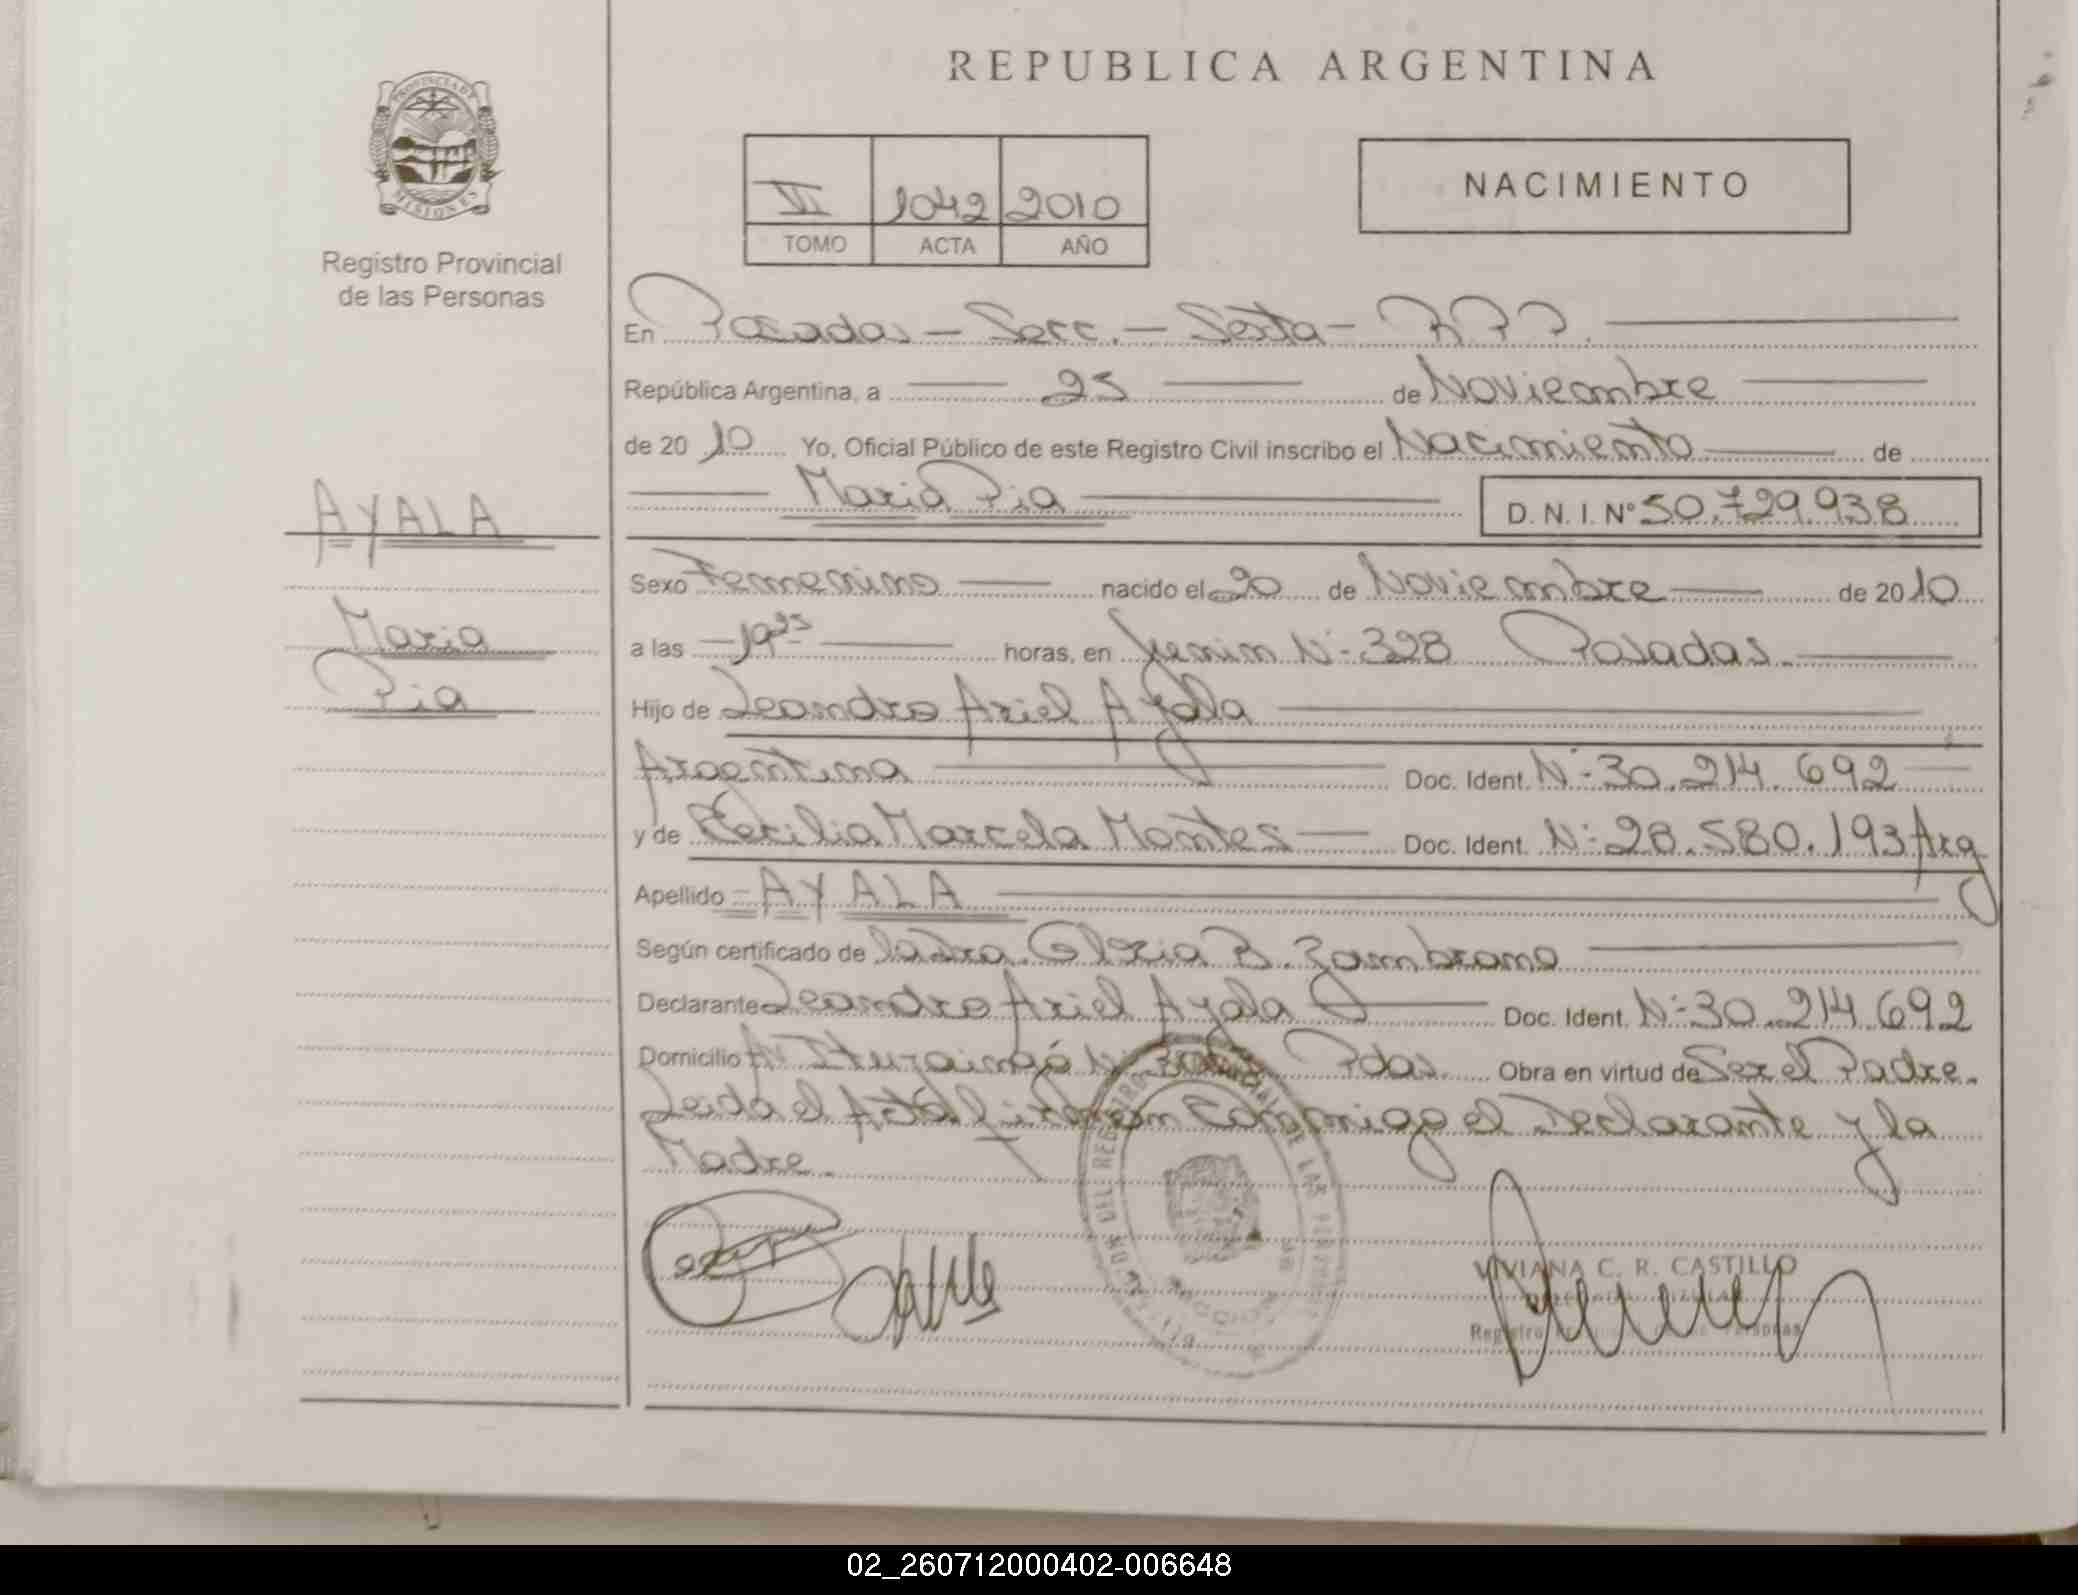 PROVINCIA DE
MISIONES
Registro Provincial
de las Personas
AYALA
Maria
Pia
REPUBLICA ARGENTINA
VI 1042 2010
TOMO ACTA AÑO
NACIMIENTO
En Posadas - Secc. - Sexta - R.P.P.
República Argentina, a 25 de Noviembre
de 2010 Yo, Oficial Público de este Registro Civil inscribo el Nacimiento de
Maria Pia D.N.I. Nº 50.729.938
Sexo Femenino nacido el 20 de Noviembre de 2010
a las 19 25 horas, en Junin Nº 328 Posadas
Hijo de Leandro Ariel Ayala
Argentina Doc. Ident. Nº 30.214.692
y de Cecilia Marcela Montes Doc. Ident. Nº 28.580.193 Arg
Apellido AYALA
Según certificado de la Dra. Gloria B. Zambrano
Declarante Leandro Ariel Ayala Doc. Ident. Nº 30.214.692
Domicilio Av Ituzaingó Nº Pdas. Obra en virtud de Ser el Padre.
Leido el Acta firman conmigo el Declarante y la
Madre.
VIVIANA C. R. CASTILLO
Registro Personas
02_260712000402-006648